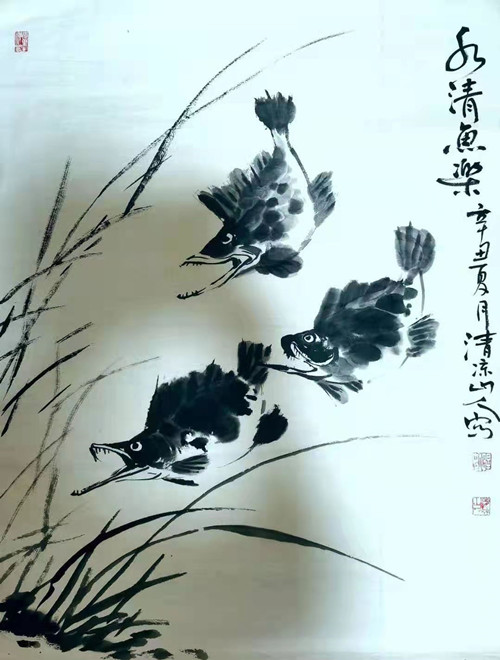 水清魚樂
辛丑夏月清凉山人寫